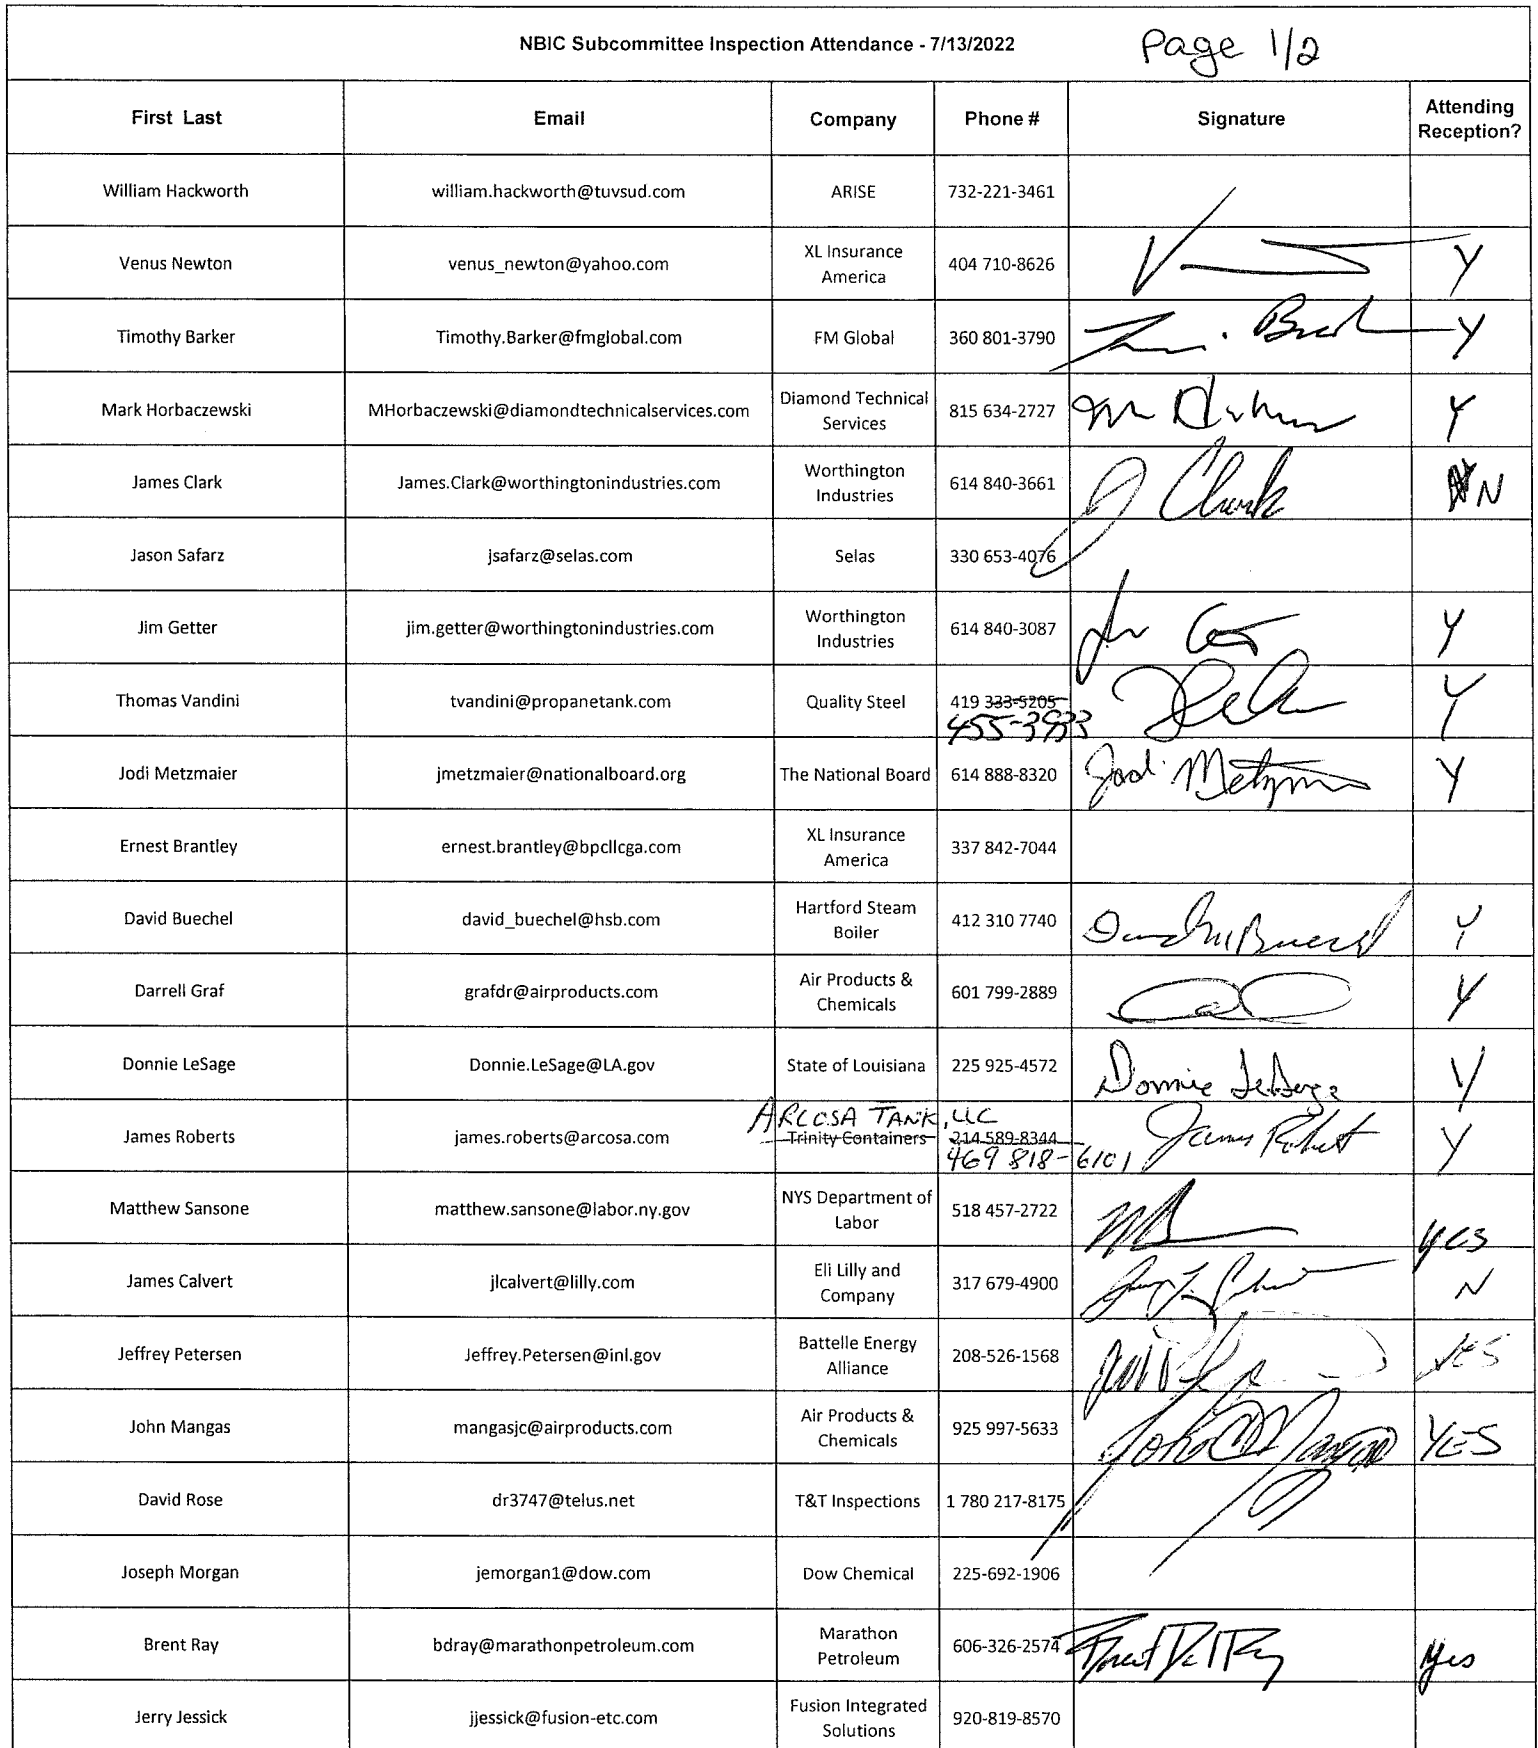 NBIC Subcommittee Inspection Attendance - 7/13/2022 Page 1/2
First Last Email Company Phone # Signature Attending Reception?
William Hackworth william.hackworth@tuvsud.com ARISE 732-221-3461
Venus Newton venus_newton@yahoo.com XL Insurance America 404 710-8626 Y
Timothy Barker Timothy.Barker@fmglobal.com FM Global 360 801-3790 Y
Mark Horbaczewski MHorbaczewski@diamondtechnicalservices.com Diamond Technical Services 815 634-2727 Y
James Clark James.Clark@worthingtonindustries.com Worthington Industries 614 840-3661 J Clark N
Jason Safarz jsafarz@selas.com Selas 330 653-4076
Jim Getter jim.getter@worthingtonindustries.com Worthington Industries 614 840-3087 Y
Thomas Vandini tvandini@propanetank.com Quality Steel 419 333-5205 455-3933 Y
Jodi Metzmaier jmetzmaier@nationalboard.org The National Board 614 888-8320 Jodi Y
Ernest Brantley ernest.brantley@bpcllcga.com XL Insurance America 337 842-7044
David Buechel david_buechel@hsb.com Hartford Steam Boiler 412 310 7740 Y
Darrell Graf grafdr@airproducts.com Air Products & Chemicals 601 799-2889 Y
Donnie LeSage Donnie.LeSage@LA.gov State of Louisiana 225 925-4572 Donnie LeSage Y
ARCOSA TANK, LLC
James Roberts james.roberts@arcosa.com Trinity Containers 214 589-8344 James Robert Y
469 818-6101
Matthew Sansone matthew.sansone@labor.ny.gov NYS Department of Labor 518 457-2722 yes
James Calvert jlcalvert@lilly.com Eli Lilly and Company 317 679-4900 N
Jeffrey Petersen Jeffrey.Petersen@inl.gov Battelle Energy Alliance 208-526-1568 YES
John Mangas mangasjc@airproducts.com Air Products & Chemicals 925 997-5633 John Mangas YES
David Rose dr3747@telus.net T&T Inspections 1 780 217-8175
Joseph Morgan jemorgan1@dow.com Dow Chemical 225-692-1906
Brent Ray bdray@marathonpetroleum.com Marathon Petroleum 606-326-2574 Yes
Jerry Jessick jjessick@fusion-etc.com Fusion Integrated Solutions 920-819-8570